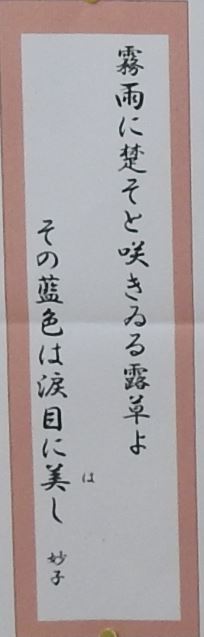 霧雨に楚そと咲きゐる露草よ
その藍色は涙目に美し
は
妙子